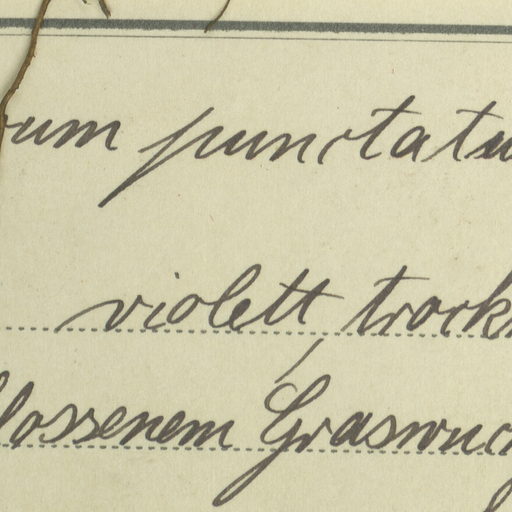 rum punctatu
violett, trock
lossenem Graswuc